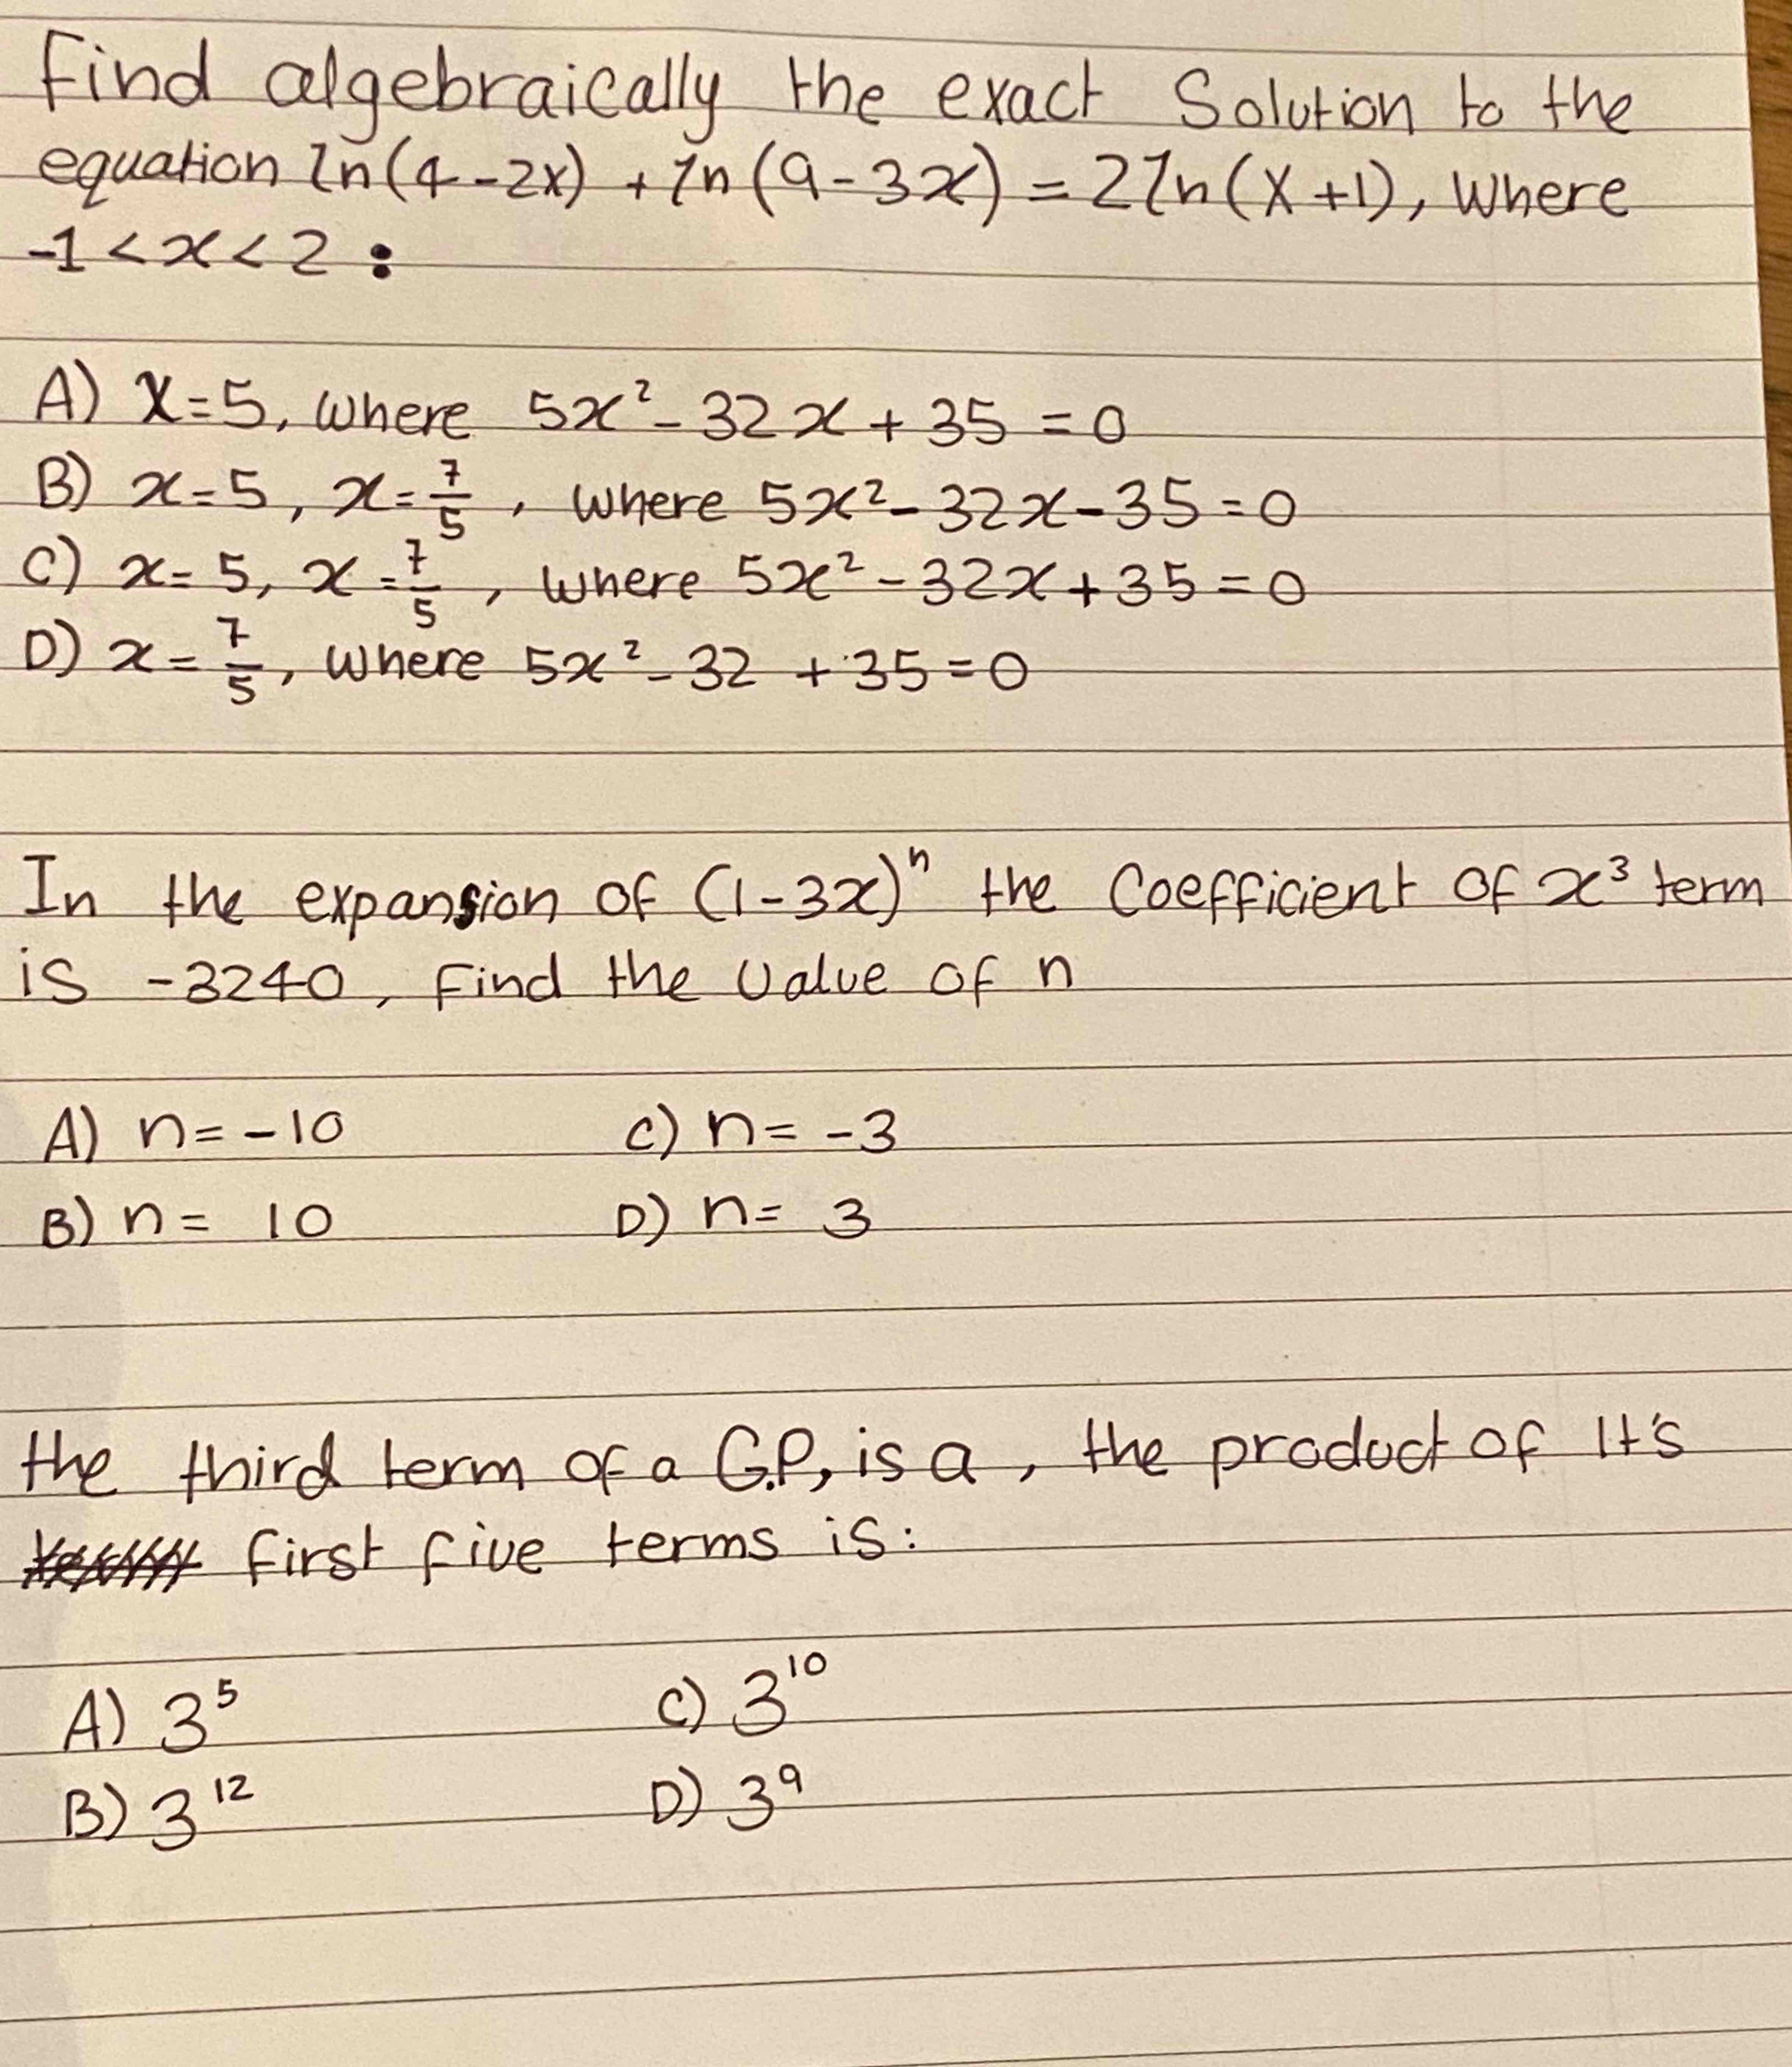 Find algebraically the exact Solution to the
equation ln(4-2x) + ln(9-3x) = 2ln(x+1), where
-1 < x < 2 :
A) x=5, where 5x² - 32x + 35 = 0
B) x=5, x=7/5, where 5x² - 32x - 35 = 0
C) x=5, x=7/5, where 5x² - 32x + 35 = 0
D) x=7/5, where 5x² - 32 + 35 = 0
In the expansion of (1-3x)ⁿ the Coefficient of x³ term
is -3240, Find the Value of n
A) n = -10 C) n = -3
B) n = 10 D) n = 3
the third term of a G.P, is a, the product of It's
first five terms is:
A) 3⁵ C) 3¹⁰
B) 3¹² D) 3⁹